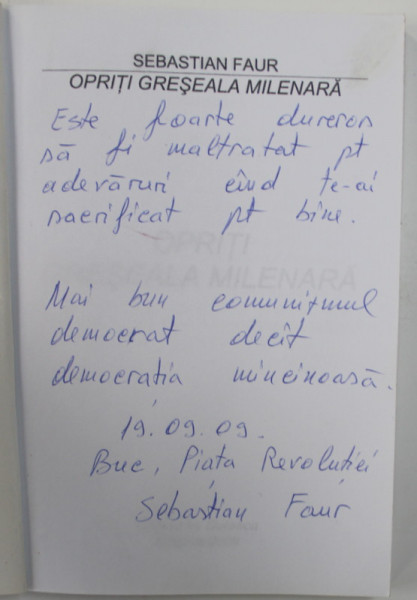 SEBASTIAN FAUR
OPRIȚI GREȘEALA MILENARĂ
Este foarte dureros
să fi maltratat pt
adevăruri cînd te-ai
sacrificat pt bine.
OPRIȚI
GREȘEALA MILENARĂ
Mai bun comunițmul
democrat decît
democrația mincinoasă.
19.09.09.
Buc, Piața Revoluției
Sebastian Faur